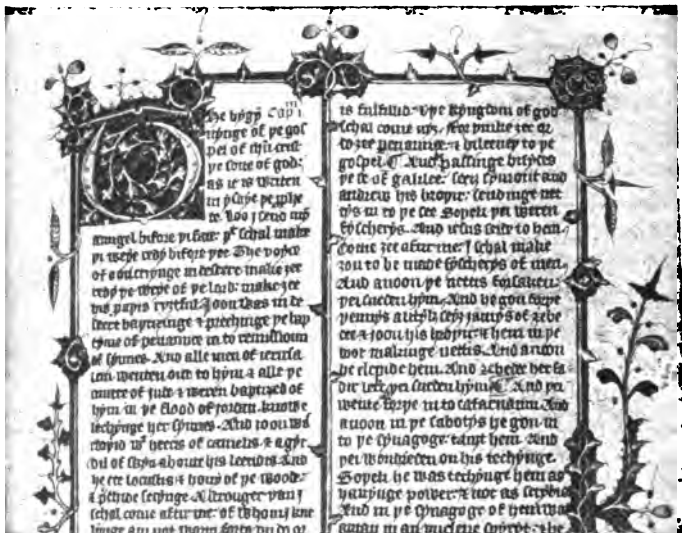 The bygȳ Capᵐ i
nynge of þe gos
pel of ihū crist
þe sone of god:
as it is writen
in ysaye þe pphe
te. Loo j send myn
aungel bifore þi face: þᵗ schal make
þi weye redy bifore þee. The voyce
of a cryinge in desert: make ȝee
redy þe weye of þe lord: make ȝee
his paþis ryȝtful. Joon was in de
sert baptisinge & prechinge þe bap
tyme of penaunce in to remissioun
of synnes. And alle men of ierusa
lem wenten out to hym & alle þe
cuntre of jude & weren baptized of
hym in þe flood of jordan. knowle
chynge her synnes. And ioon was
cloþid wᵗ heeris of camelis & a gyr
dil of skyn about his leendis. And
he eet locustis & hony of þe wood:
& pchide seyinge. A strenger þan j
schal come aftir me: of whom j kne
linge am not worþi forto vndo or
is fulfillid: & þe kyngdom of god
schal come nyȝ. for þinke ȝee or
do ȝee penaunce: & bileeue ȝe to þe
gospel. And passinge bisydes
þe see of galilee: seȝ symount and
andrew his broþir: sendinge net
tys in to þe see. Soþeli þei weren
fyscherys. And iesus seide to hem:
come ȝee after me: I schal make
ȝou to be made fyscherys of men.
And anoon þe nettis forsaken:
þei sueden hym. And he gon forþe
þennys a lityl seȝ jamys of zebe
dee & joon his broþir: & hem in þe
boot makinge nettis. And anoon
he clepide hem. And zebedee her fa
dir left þei sueden hym. And þei
wente forþe in to cafarnaum. And
anoon in þe sabotys he gon in
to þe synagoge: tauȝt hem. And
þei wondreden on his techynge.
Soþeli he was techynge hem as
hauynge power: & not as scribis
And in þe synagoge of hem was
a man in an vnclene spiryt: & he